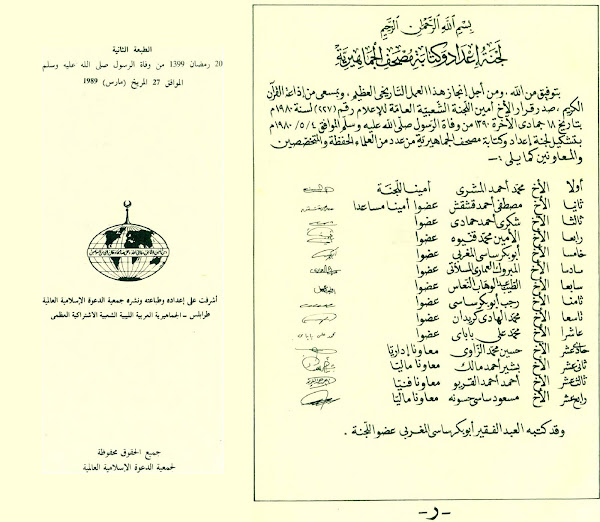 الطبعة الثانية
20 رمضان 1399 من وفاة الرسول صلى الله عليه وسلم
الموافق 27 المريخ (مارس) 1989
أشرفت على إعداده وطباعته ونشره جمعية الدعوة الإسلامية العالمية
طرابلس - الجماهيرية العربية الليبية الشعبية الاشتراكية العظمى
جميع الحقوق محفوظة
لجمعية الدعوة الإسلامية العالمية
بسم الله الرحمن الرحيم
لجنة إعداد وكتابة مصحف الجماهيرية
بتوفيق من الله، ومن أجل إنجاز هذا العمل التاريخي العظيم، وبسعي من إذاعة القرآن
الكريم، صدر قرار الأخ أمين اللجنة الشعبية العامة للإعلام رقم (٢٢٧) لسنة ١٩٨٠م
بتاريخ ١٨ جمادى الآخرة ١٣٩٠ من وفاة الرسول صلى الله عليه وسلم الموافق ١٩٨٠/٥/٤م
بتشكيل لجنة إعداد وكتابة مصحف الجماهيرية من عدد من العلماء الحفظة والمتخصصين
والمعاونين كما يلي :-
أولا الأخ محمد أحمد المشري أمينا للجنة
ثانيا الأخ مصطفى أحمد قشقش عضوا أمينا مساعدا
ثالثا الأخ شكري أحمد حمادي عضوا
رابعا الأخ الأمين محمد قنيوه عضوا
خامسا الأخ أبوبكر ساسي المغربي عضوا
سادسا الأخ المبروك العماري المسلاتي عضوا
سابعا الأخ الطيب عبد الوهاب النعاس عضوا
ثامنا الأخ رجب أبوبكر ساسي عضوا
تاسعا الأخ محمد الهادي كريدان عضوا
عاشرا الأخ محمد علي باباي عضوا
حادي عشر الأخ حسين محمد الزاوي معاونا إداريا
ثاني عشر الأخ بشير أحمد مالك معاونا ماليا
ثالث عشر الأخ أحمد أحمد القريو معاونا فنيا
رابع عشر الأخ مسعود ساسي حسونه معاونا ماليا
وقد كتبه العبد الفقير أبوبكر ساسي المغربي عضو اللجنة .
- ر -